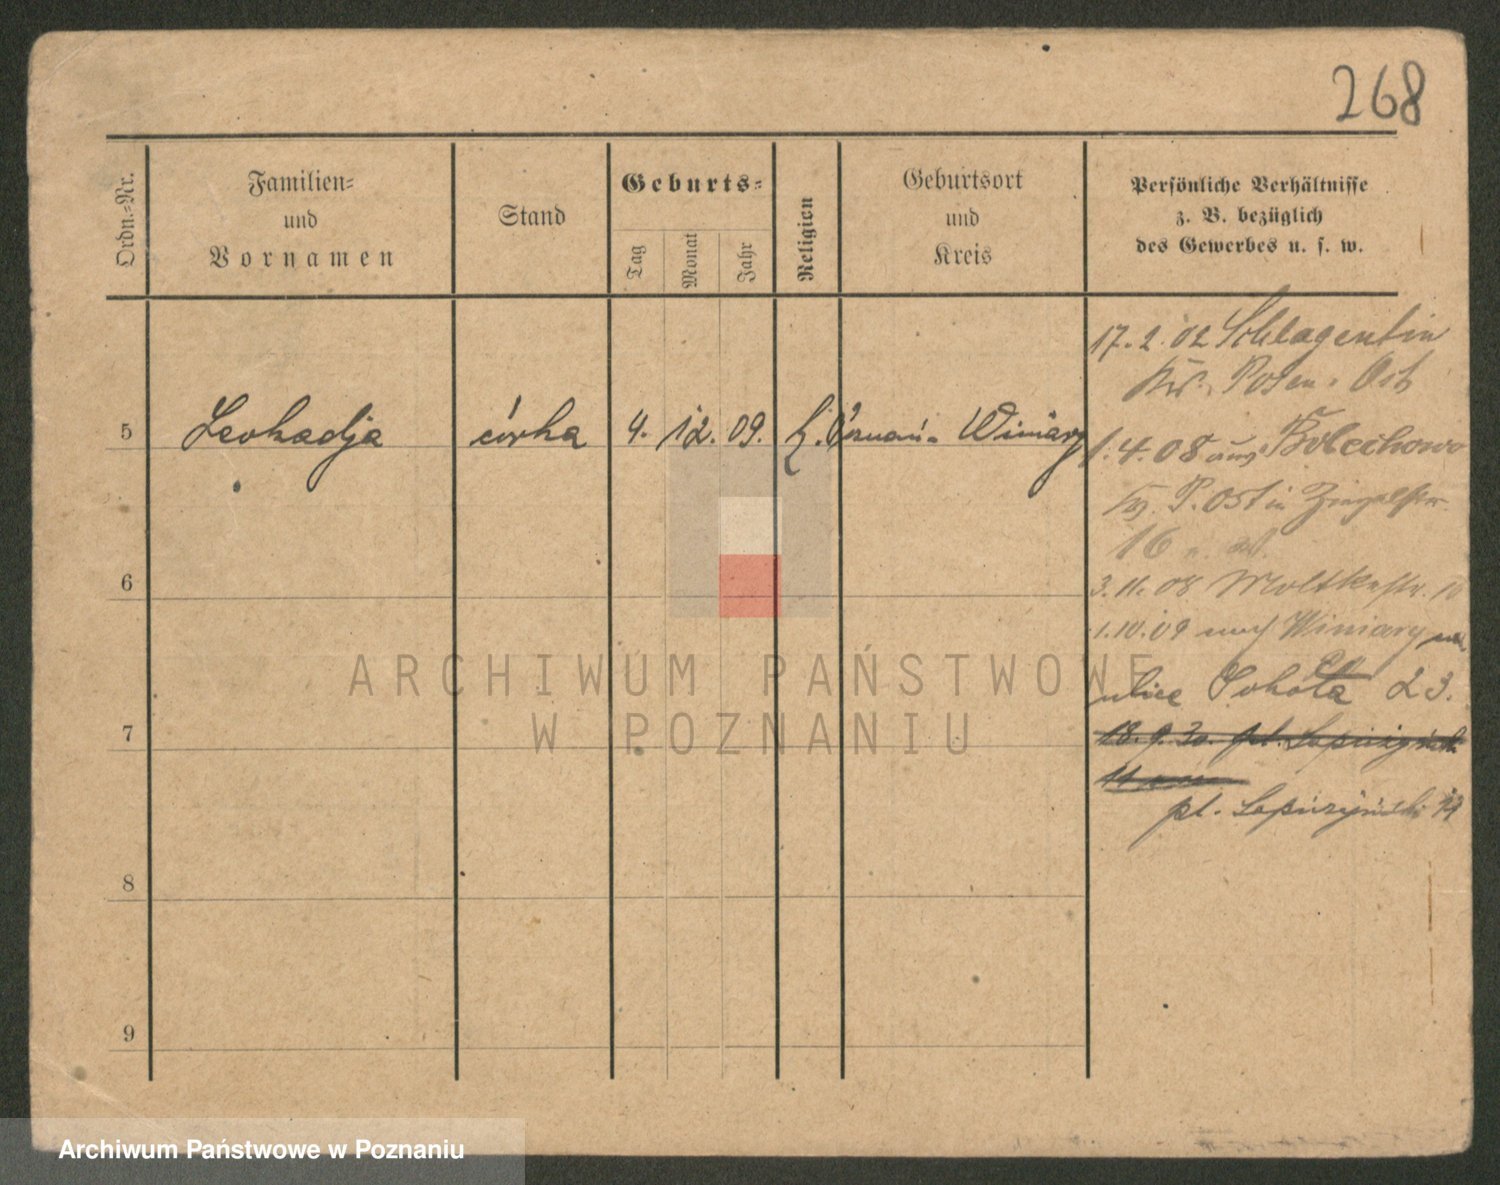 268
Ordn.-Nr.
Familien-
und
Vornamen
Stand
Geburts-
Tag
Monat
Jahr
Religion
Geburtsort
und
Kreis
Persönliche Verhältnisse
z. B. bezüglich
des Gewerbes u. s. w.
17. 2. 02 Schlagentin
Kr. Posen-Ost
5 Leokadja córka 4. 12. 09. k. Poznań- Winiary
1. 4. 08 aus Bolechowo
Kr. P. Ost in
16
6
3. 11. 08 Moltkestr. 10
1. 10. 09 nach Winiary
ulica Sokoła 23.
7
18. 9. 30. pl.
pl.
8
9
ARCHIWUM PAŃSTWOWE
W POZNANIU
Archiwum Państwowe w Poznaniu